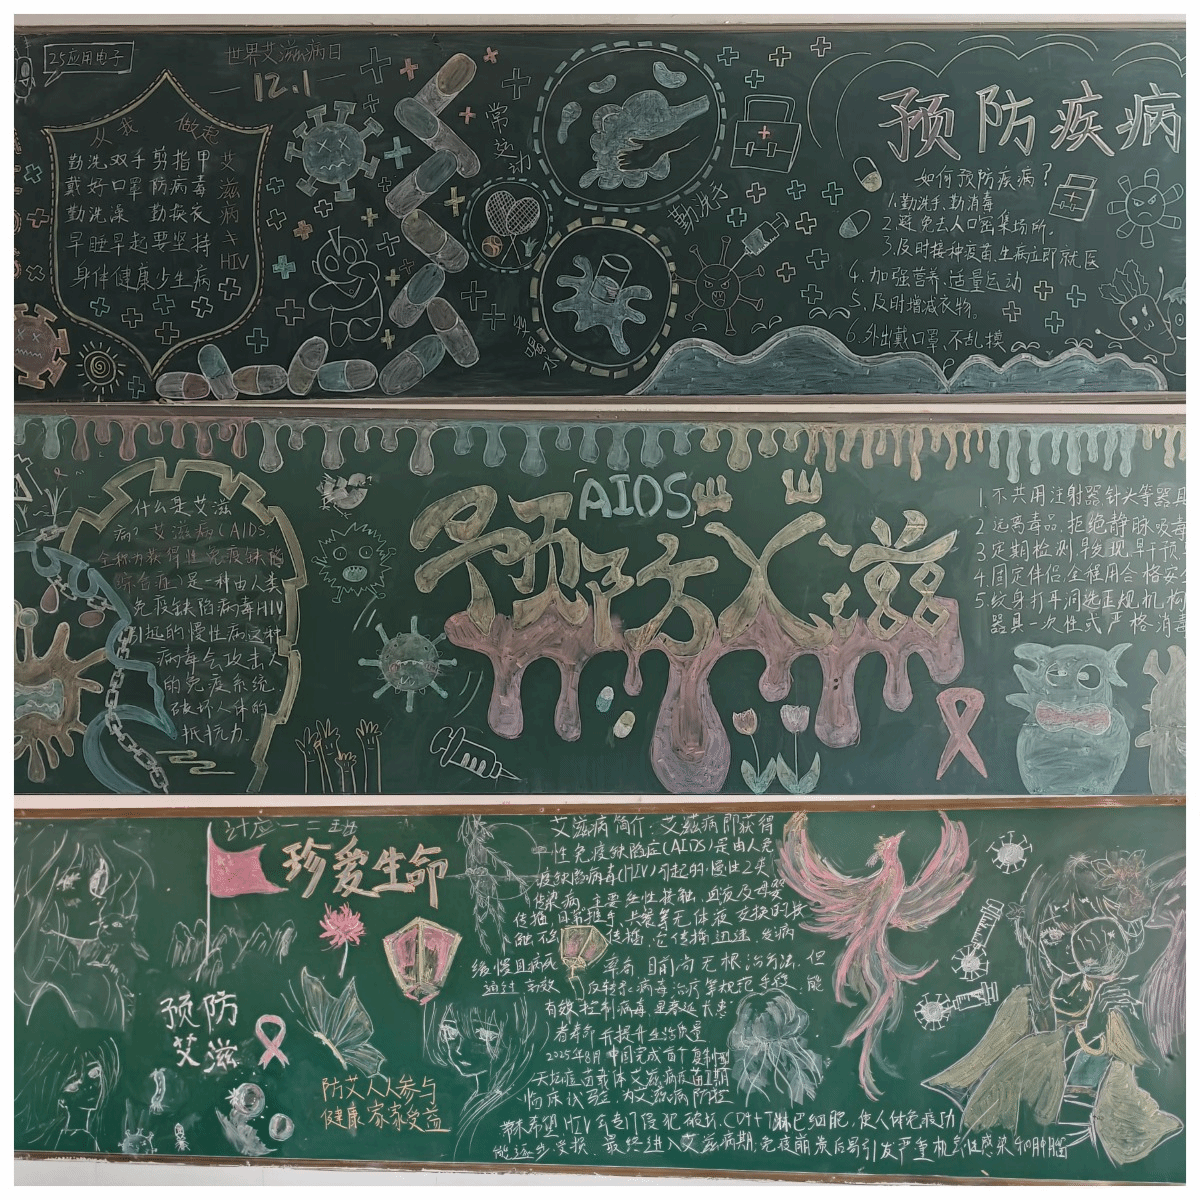 25应用电子
世界艾滋病日
12.1
从我 做起
勤洗双手剪指甲
戴好口罩防病毒
勤洗澡 勤换衣
早睡早起要坚持
身体健康少生病
艾滋病
HIV
常运动
勤洗手
喝水
预防疾病
如何预防疾病?
1.勤洗手,勤消毒
2.避免去人口密集场所。
3.及时接种疫苗,生病立即就医
4.加强营养,适量运动
5.及时增减衣物。
6.外出戴口罩,不乱摸
什么是艾滋
病?艾滋病(AIDS
全称为获得性免疫缺陷
综合症)是一种由人类
免疫缺陷病毒HIV
引起的慢性病这种
病毒会攻击人
的免疫系统,
破坏人体的
抵抗力.
「AIDS」
预防艾滋
1.不共用注射器针头等器具
2.远离毒品,拒绝静脉吸毒
3.定期检测,早发现,早干预
4.固定伴侣,全程用合格安全
5.纹身打耳洞选正规机构
器具一次性或严格消毒
计应一二班
珍爱生命
预防
艾滋
防艾人人参与
健康家家受益
艾滋病简介:艾滋病即获得
性免疫缺陷症(AIDS)是由人类
疫缺陷病毒(HIV)引起的慢性乙类
传染病,主要经性接触,血液及母婴
传播,日常握手,共餐等无体液交换的接
触不会传播,它传播迅速,发病
缓慢且病死率高,目前尚无根治方法,但
通过高效反转录病毒治疗等规范手段,能
有效控制病毒,显著延长患
者寿命并提升生活质量
2025年8月中国完成首个复制型
天坛痘苗载体艾滋病疫苗I期
临床试验,为艾滋病防控
带来希望HIV会专门侵犯破坏CD4+T淋巴细胞,使人体免疫功
能逐步受损,最终进入艾滋病期,免疫崩溃后易引发严重机会性感染和肿瘤